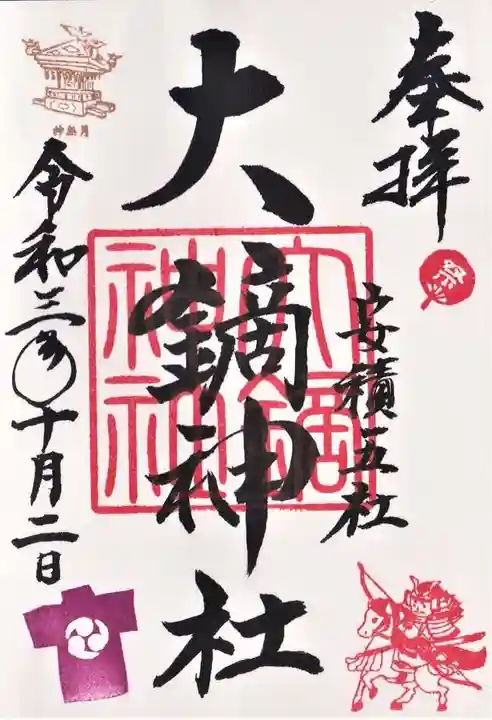 奉拝
祭
安積五社
大鏑神社
大鏑神社
神無月
令和三年十月二日